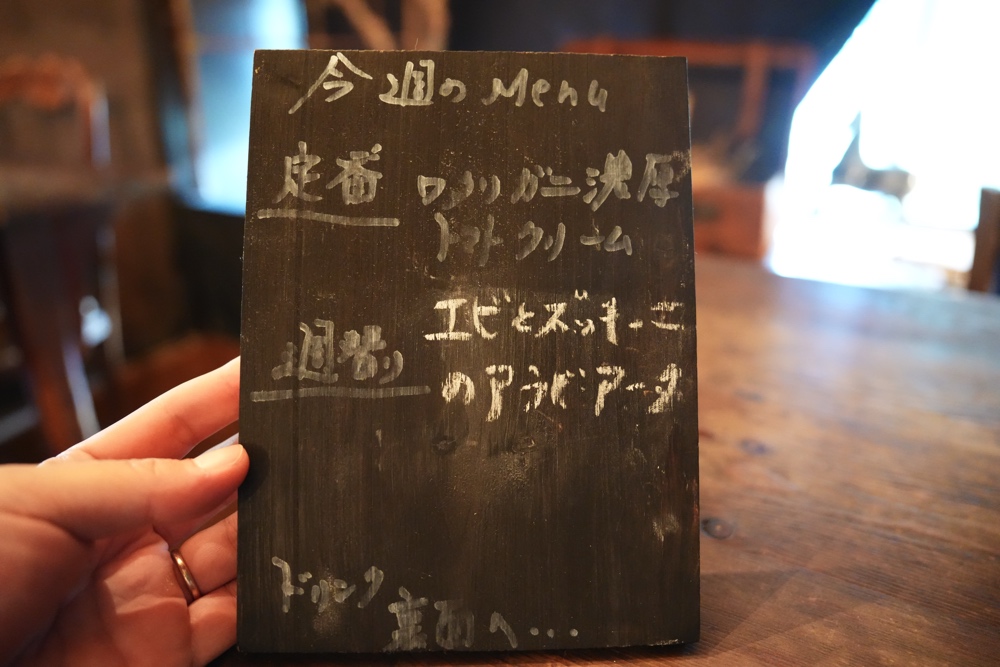 今週のMenu
定番 ワタリガニ濃厚
トマトクリーム
週替り エビとズッキーニ
のアラビアータ
ドリンク
裏面へ...